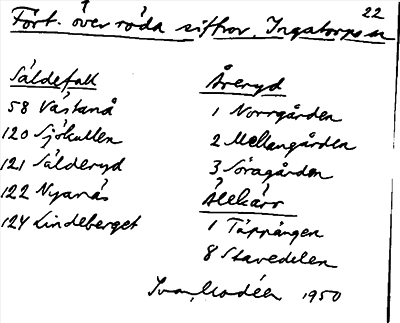 22
Fört. över röda siffror. Ingatorps sn
Säldefall
58 Västanå
120 Sjökullen
121 Sälderyd
122 Nyanäs
124 Lindeberget
Åreryd
1 Norrgården
2 Mellangården
3 Söragården
Älekärr
1 Täppängen
8 Stavedelen
Ivar Modéer 1950